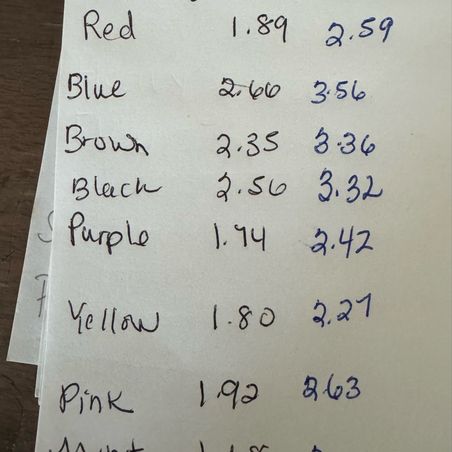 Red 1.89 2.59
Blue 2.66 3.56
Brown 2.35 3.36
Black 2.56 3.32
Purple 1.74 2.42
Yellow 1.80 2.27
Pink 1.92 2.63